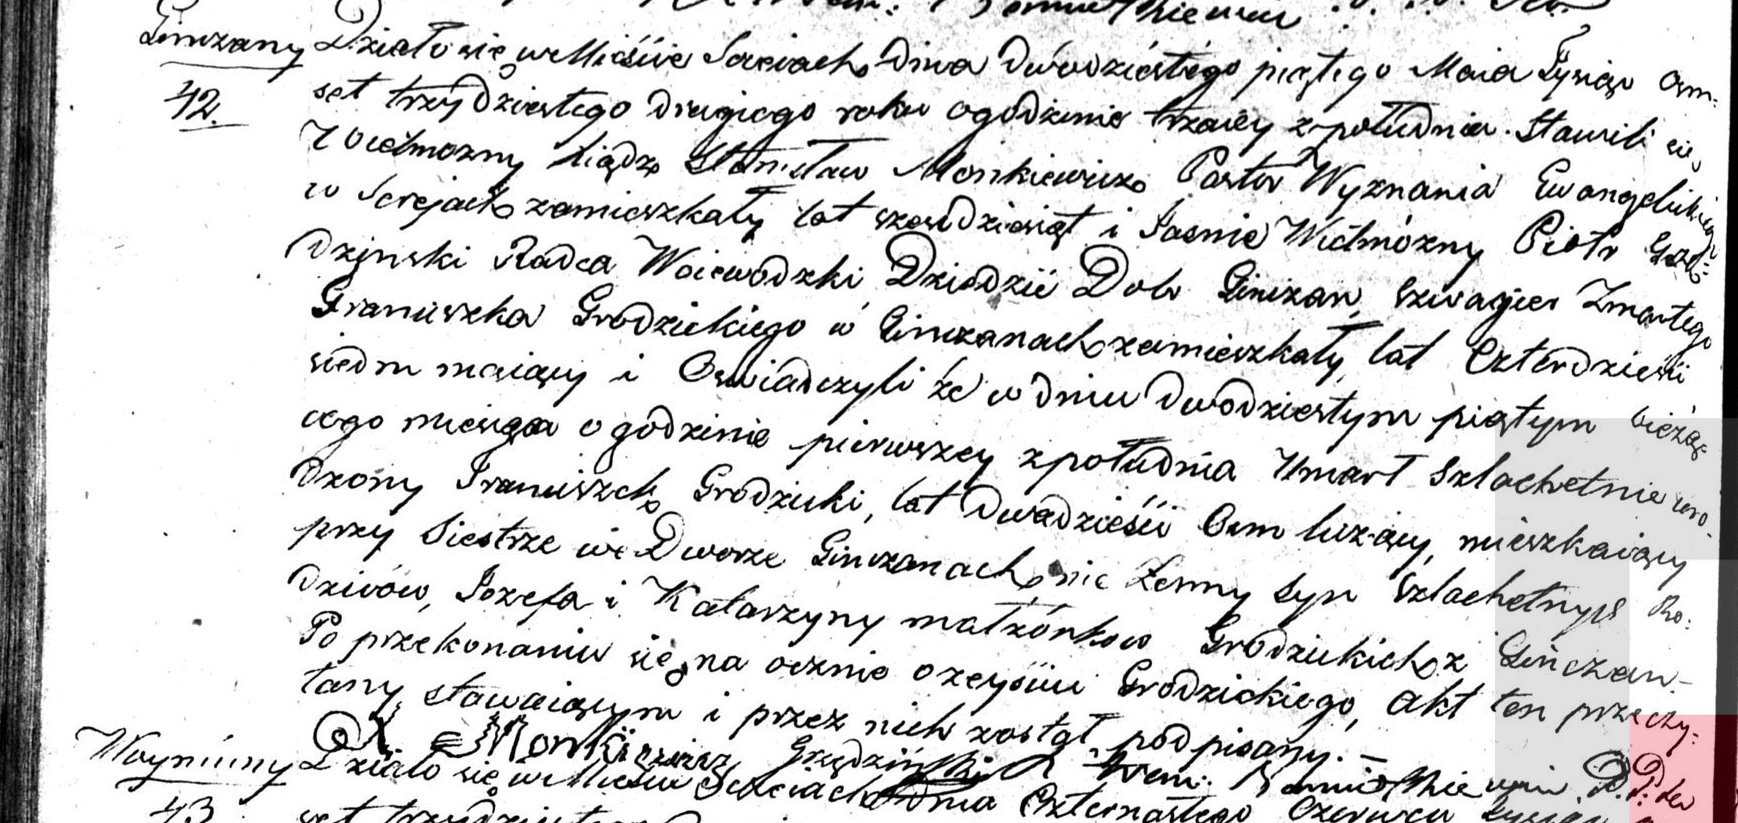 Ginczany
42.
Działo się w Mieście Sereiach dnia dwódziestego piątego Maia Tysiąc osm:
set trzydziestego drugiego roku o godzinie trzeciey z południa. Stawili się
Wielmożny Xiądz Stanisław Monkiewicz Pastor Wyznania Ewangelickiego
w Serejach zamieszkały lat sześćdziesiąt i Jaśnie Wielmożny Piotr
dzinski Radca Woiewodzki Dziedzic Dobr Ginczan, szwagier Zmarłego
Franciszka Grodzickiego w Ginczanach zamieszkały, lat Czterdzieści
siedm maiący i Oswiadczyli że w dniu dwodziestym piątym bieżąc
cego miesiąca o godzinie pierwszey z południa Umarł Szlachetnie uro:
dzony Franciszek Grodzicki, lat dwadzieścia Osm liczący, mieszkaiący
przy Siestrze we Dworze Ginczanach, nie żenny Syn Szlachetnych Ro:
dziców, Józefa i Katarzyny małżonkow Grodzickich z Ginczan.-
Po przekonaniu się na ocznie o zeyściu Grodzickiego, akt ten przeczy:
tany stawaiącym i przez nich został podpisany.-
X. S Monkiewicz Grzędziński
Woyniuny Działo się w Mieście Sereiach dnia Czternastego Czerwca Tysiąc
43. set trzydziestego